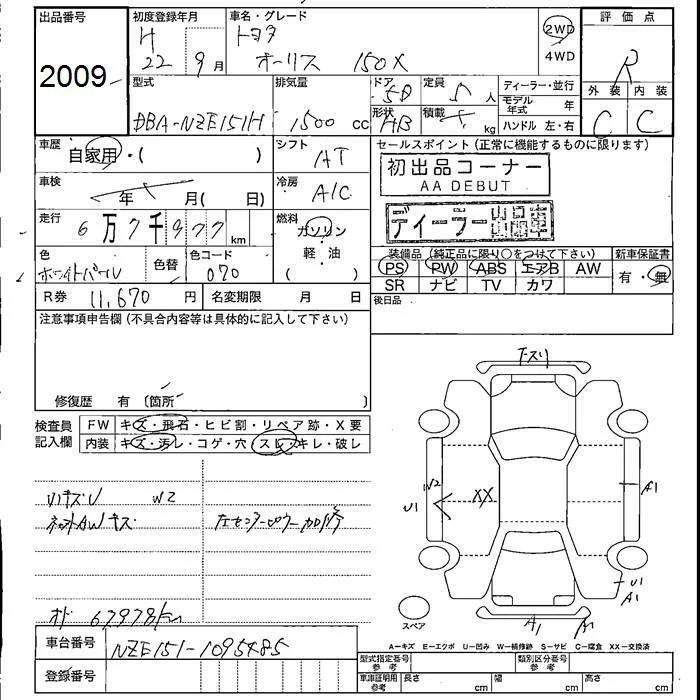 出品番号 2009
初度登録年月 H 22年 9月
車名・グレード トヨタ オーリス 150X
2WD 4WD
評価点 R
外装 C 内装 C
型式 DBA-NZE151H
排気量 1500 cc
ドア 5D 形状 HB
定員 5人 積載 kg
ディーラー・並行
モデル年式 年
ハンドル 左・右
車歴 自家用・( )
シフト AT
セールスポイント(正常に機能するものに限ります)
初出品コーナー
AA DEBUT
ディーラー出品車
車検 年 月( 日)
冷房 A/C
走行 6万7千977 km
燃料 ガソリン 軽・油 ( )
色 ホワイトパール 色替
色コード 070
装備品(純正品に限り○をつけて下さい)
PS PW ABS エアB AW
SR ナビ TV カワ
新車保証書 有・無
R券 11,670円
名変期限 月 日
後日品
注意事項申告欄(不具合内容等は具体的に記入して下さい)
修復歴 有 〔箇所 〕
検査員記入欄
FW キズ・飛石・ヒビ割・リペア跡・X要
内装 キズ・汚レ・コゲ・穴 スレ・キレ・破レ
W2
AWキズ
オド 67978km
車台番号 NZE151-1095485
登録番号
W2
U1
XX
A1
U1
A1
A1
A1
スペア
A-キズ E-エクボ U-凹み W-補修跡 S-サビ C-腐食 XX-交換済
型式指定番号 参考
類別区分番号 参考
車庫証明用 参考 長さ cm 幅 cm 高さ cm